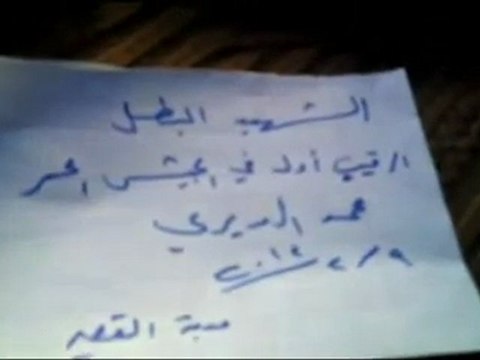 الشهيد البطل
الرقيب أول في الجيش الحر
محمد الديري
٩/٢/٢٠١٢
مدينة القصير